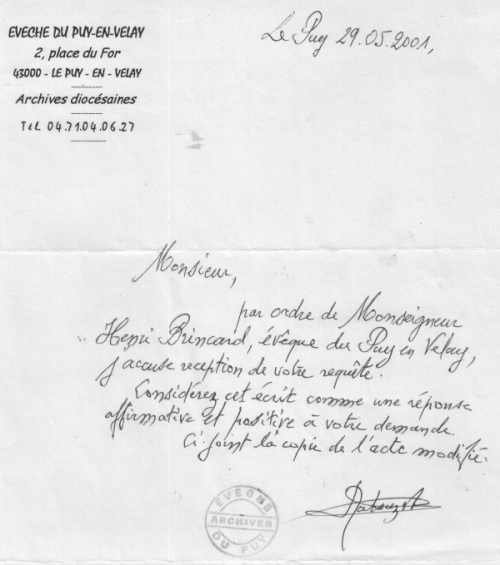 EVECHE DU PUY-EN-VELAY
2, place du For
43000 - LE PUY - EN - VELAY
Archives diocésaines
Tél. 04.71.04.06.27
Le Puy 29.05.2001,
Monsieur,
par ordre de Monseigneur
Henri Brincard, évêque du Puy en Velay,
j'accuse reception de votre requête.
Considérez cet écrit comme une réponse
affirmative et positive à votre demande.
Ci-joint la copie de l'acte modifié.
EVECHE
ARCHIVES
DU PUY